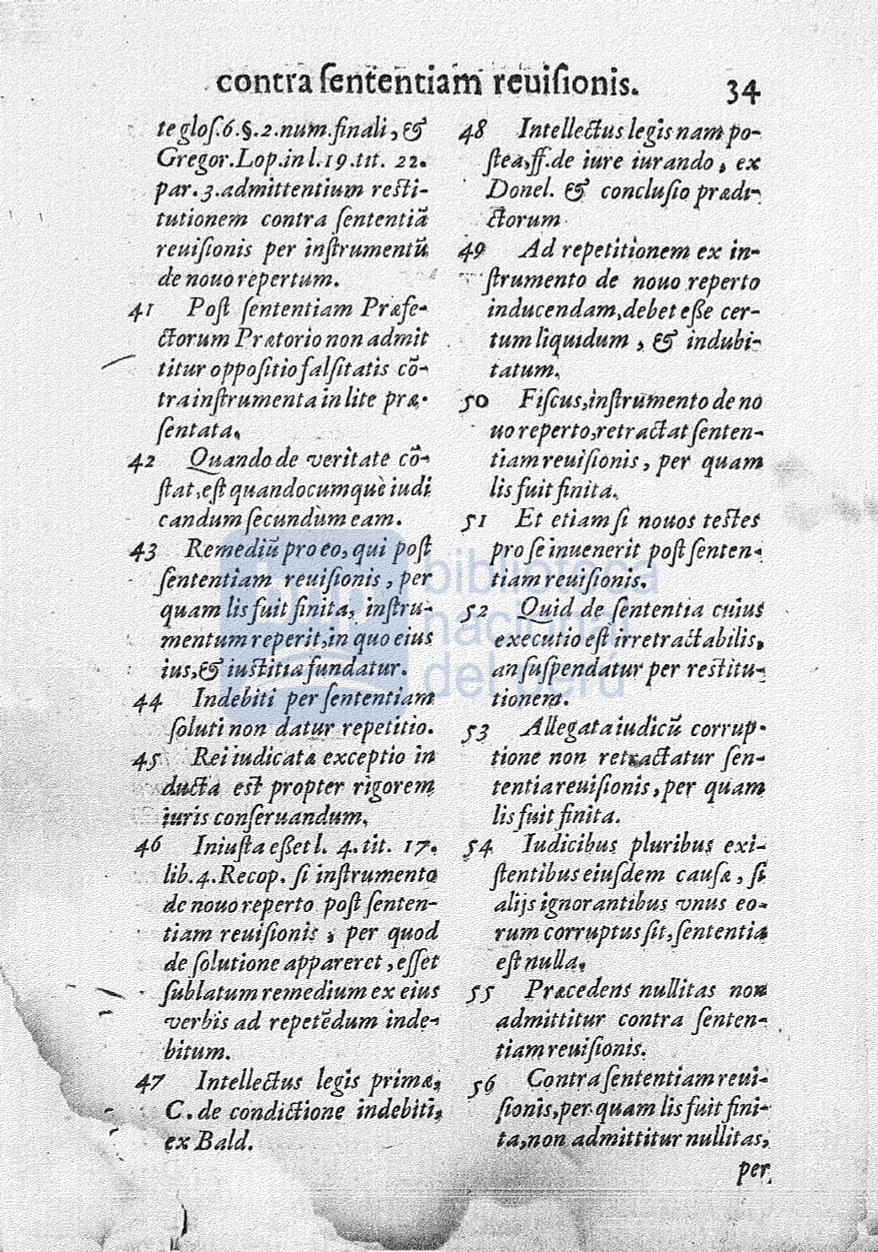 contra ſententiam reuiſionis. 34
te gloſ.6.§.2.num.finali, &
Gregor.Lop.in l.19.tit. 22.
par.3.admittentium reſti-
tutionem contra ſententiā
reuiſionis per inſtrumentū
de nouo repertum.
41 Poſt ſententiam Præfe-
ctorum Prætorio non admit
titur oppoſitio falſitatis cō-
tra inſtrumenta in lite præ-
ſentata.
42 Quando de veritate cō-
ſtat, eſt quandocumquè iudi
candum ſecundùm eam.
43 Remediū pro eo, qui poſt
ſententiam reuiſionis, per
quam lis fuit finita, inſtru-
mentum reperit, in quo eius
ius, & iuſtitia fundatur.
44 Indebiti per ſententiam
ſoluti non datur repetitio.
45 Rei iudicatæ exceptio in
ducta eſt propter rigorem
iuris conſeruandum.
46 Iniuſta eßet l. 4. tit. 17.
lib.4.Recop. ſi inſtrumento
de nouo reperto poſt ſenten-
tiam reuiſionis, per quod
de ſolutione appareret, eſſet
ſublatum remedium ex eius
verbis ad repetēdum inde-
bitum.
47 Intellectus legis primæ,
C. de condictione indebiti,
ex Bald.
48 Intellectus legis nam po-
ſtea, ff. de iure iurando, ex
Donel. & concluſio prædi-
ctorum
49 Ad repetitionem ex in-
ſtrumento de nouo reperto
inducendam, debet eße cer-
tum liquidum, & indubi-
tatum.
50 Fiſcus, inſtrumento de no
uo reperto, retractat ſenten-
tiam reuiſionis, per quam
lis fuit finita.
51 Et etiam ſi nouos teſtes
pro ſe inuenerit poſt ſenten-
tiam reuiſionis.
52 Quid de ſententia cuius
executio eſt irretractabilis,
an ſuſpendatur per reſtitu-
tionem.
53 Allegata iudicū corrup-
tione non retractatur ſen-
tentia reuiſionis, per quam
lis fuit finita.
54 Iudicibus pluribus exi-
ſtentibus eiuſdem cauſæ, ſi
alijs ignorantibus vnus eo-
rum corruptus ſit, ſententia
eſt nulla.
55 Præcedens nullitas non
admittitur contra ſenten-
tiam reuiſionis.
56 Contra ſententiam reui-
ſionis, per quam lis fuit fini-
ta, non admittitur nullitas,
per
biblioteca
nacional
del perú